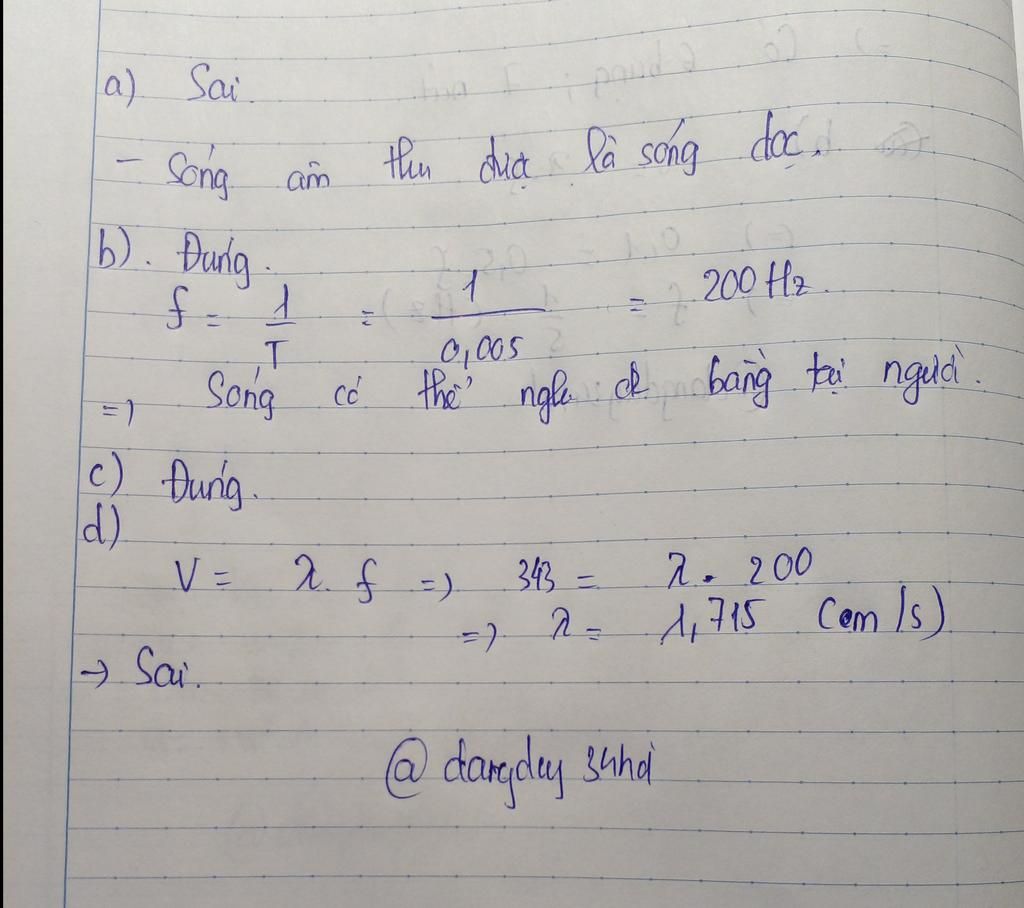 a) Sai.
- Sóng âm thu được là sóng dọc.
b). Đúng.
f = 1/T = 1/0,005 = 200 Hz.
=> Sóng có thể nghe đc bằng tai người.
c) Đúng.
d)
V = λ. f => 343 = λ. 200
=> λ = 1,715 (cm/s)
→ Sai.
@ dangduy 34hd